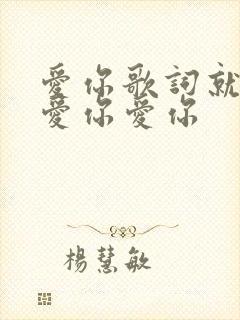 愛你歌詞就
愛你愛你
楊慧敏